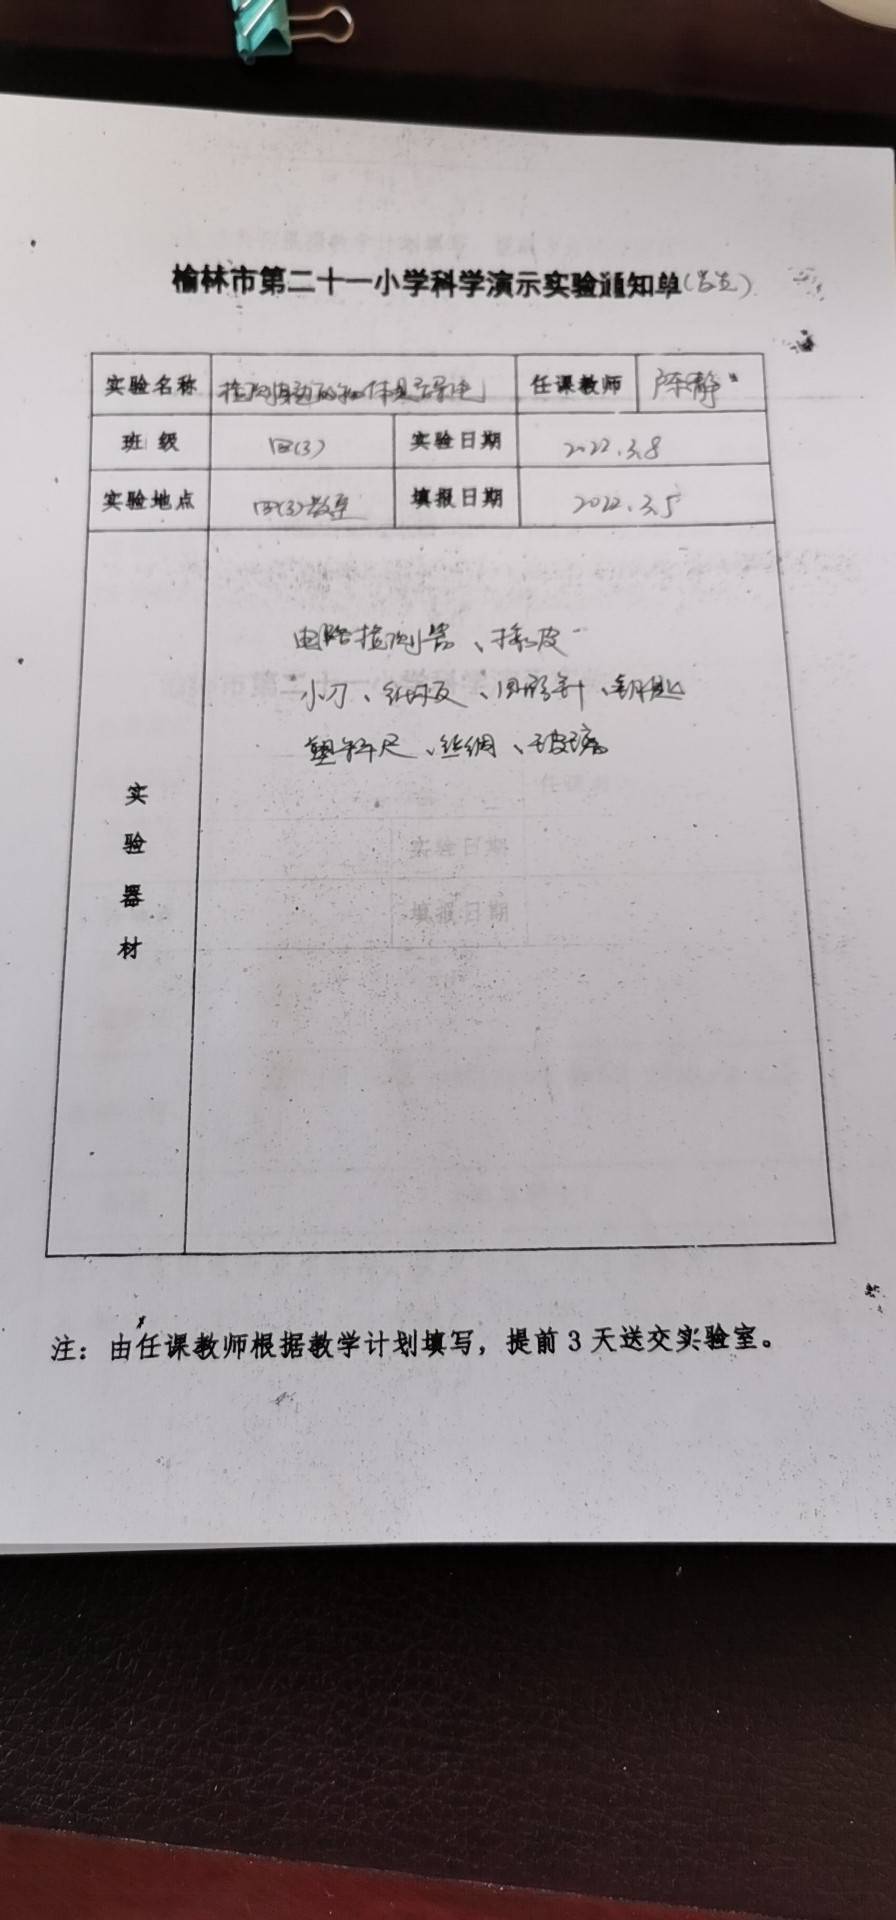 榆林市第二十一小学科学演示实验通知单
实验名称 检测身边的物体是否导电 任课教师 陈静
班级 四(3) 实验日期 2022.3.8
实验地点 四(3)教室 填报日期 2022.3.5
实验器材
电路检测器、橡皮
小刀、纸板、回形针、钥匙
塑料尺、丝绸、玻璃
注：由任课教师根据教学计划填写，提前3天送交实验室。